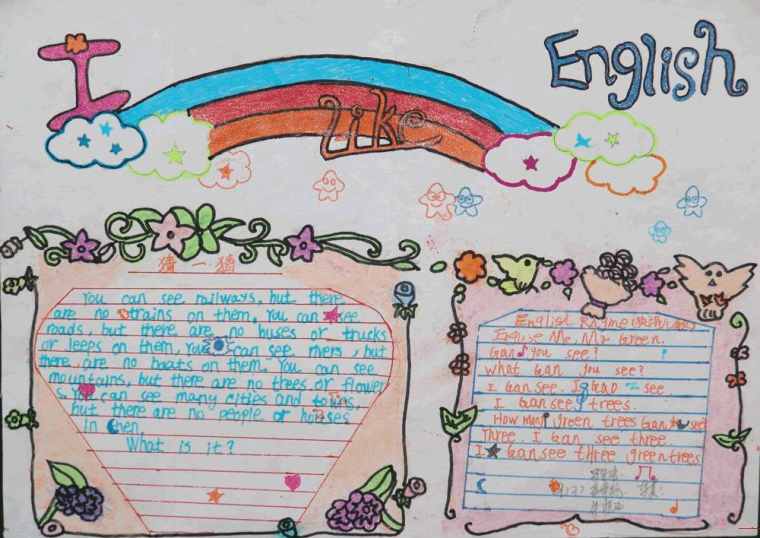 I
Like
English
猜一猜
You can see railways, but there
are no trains on them. You can see
roads, but there are no buses or trucks
or leeps on them, You can see rivers, but
there are no boats on them. You can see
mountains, but there are no trees or flower
s. You can see many cities and towns,
but there are no people or houses
in then.
What is it?
English Rhyme
Excuse Me, Mr Green.
Can you see?
What can you see?
I can see. I can see.
I can see trees.
How many green trees can you see
Three. I can see three.
I can see three green trees